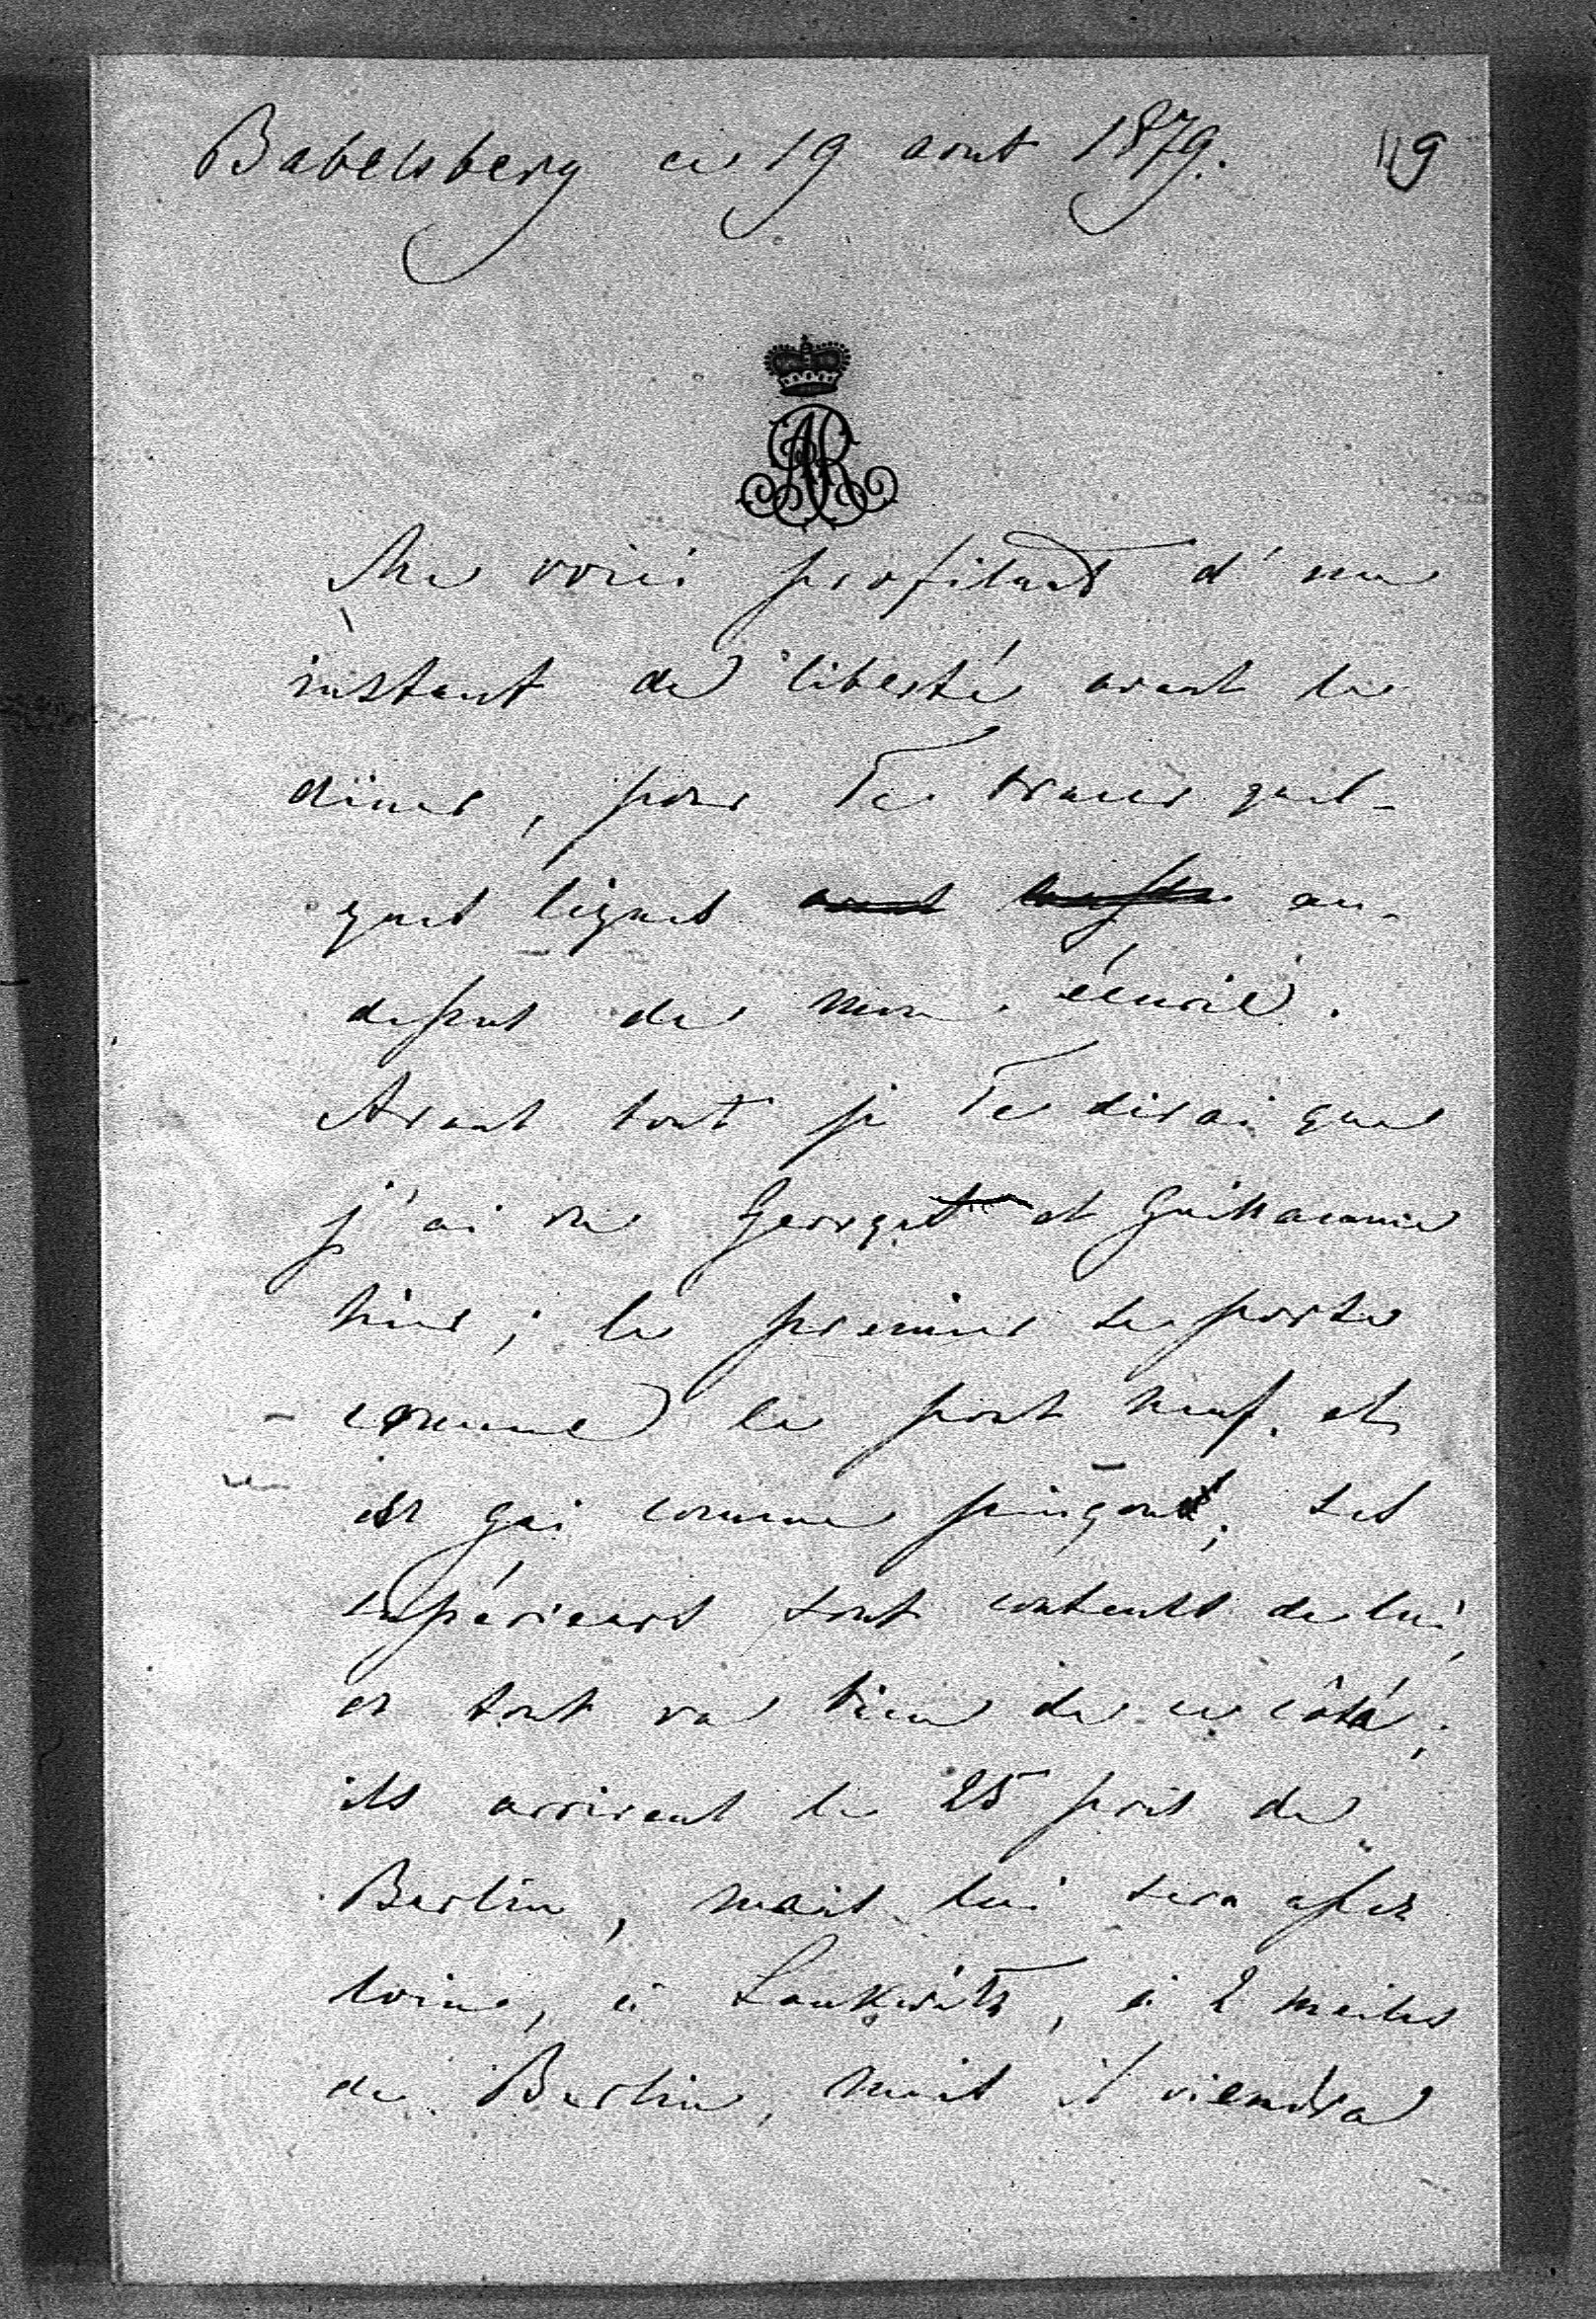 Babelsberg ce 19 aout 1879. 119
AR
Me voici profitant d'un
instant de liberté avant le
diner, pour Te tracer quel-
ques lignes avant au-
dessus de mon écurie.
Avant tout je Te dirai que
j'ai vu Georges et Guillaume
hier; le premier se porte
comme le pont neuf et
est gai comme pinçon; ses
supérieurs sont contents de lui,
et tout va bien de ce côté;
ils arrivent le 25 près de
Berlin, mais lui sera assez
loin, à Lankwitz, à 2 meiles
de Berlin, mais il viendra